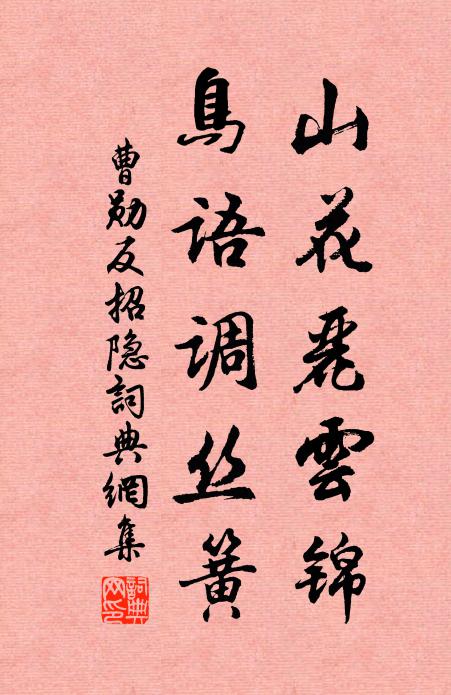 山花麗雲錦
鳥語调丝簧
曹勋反招隐詞典網集
詞典網印